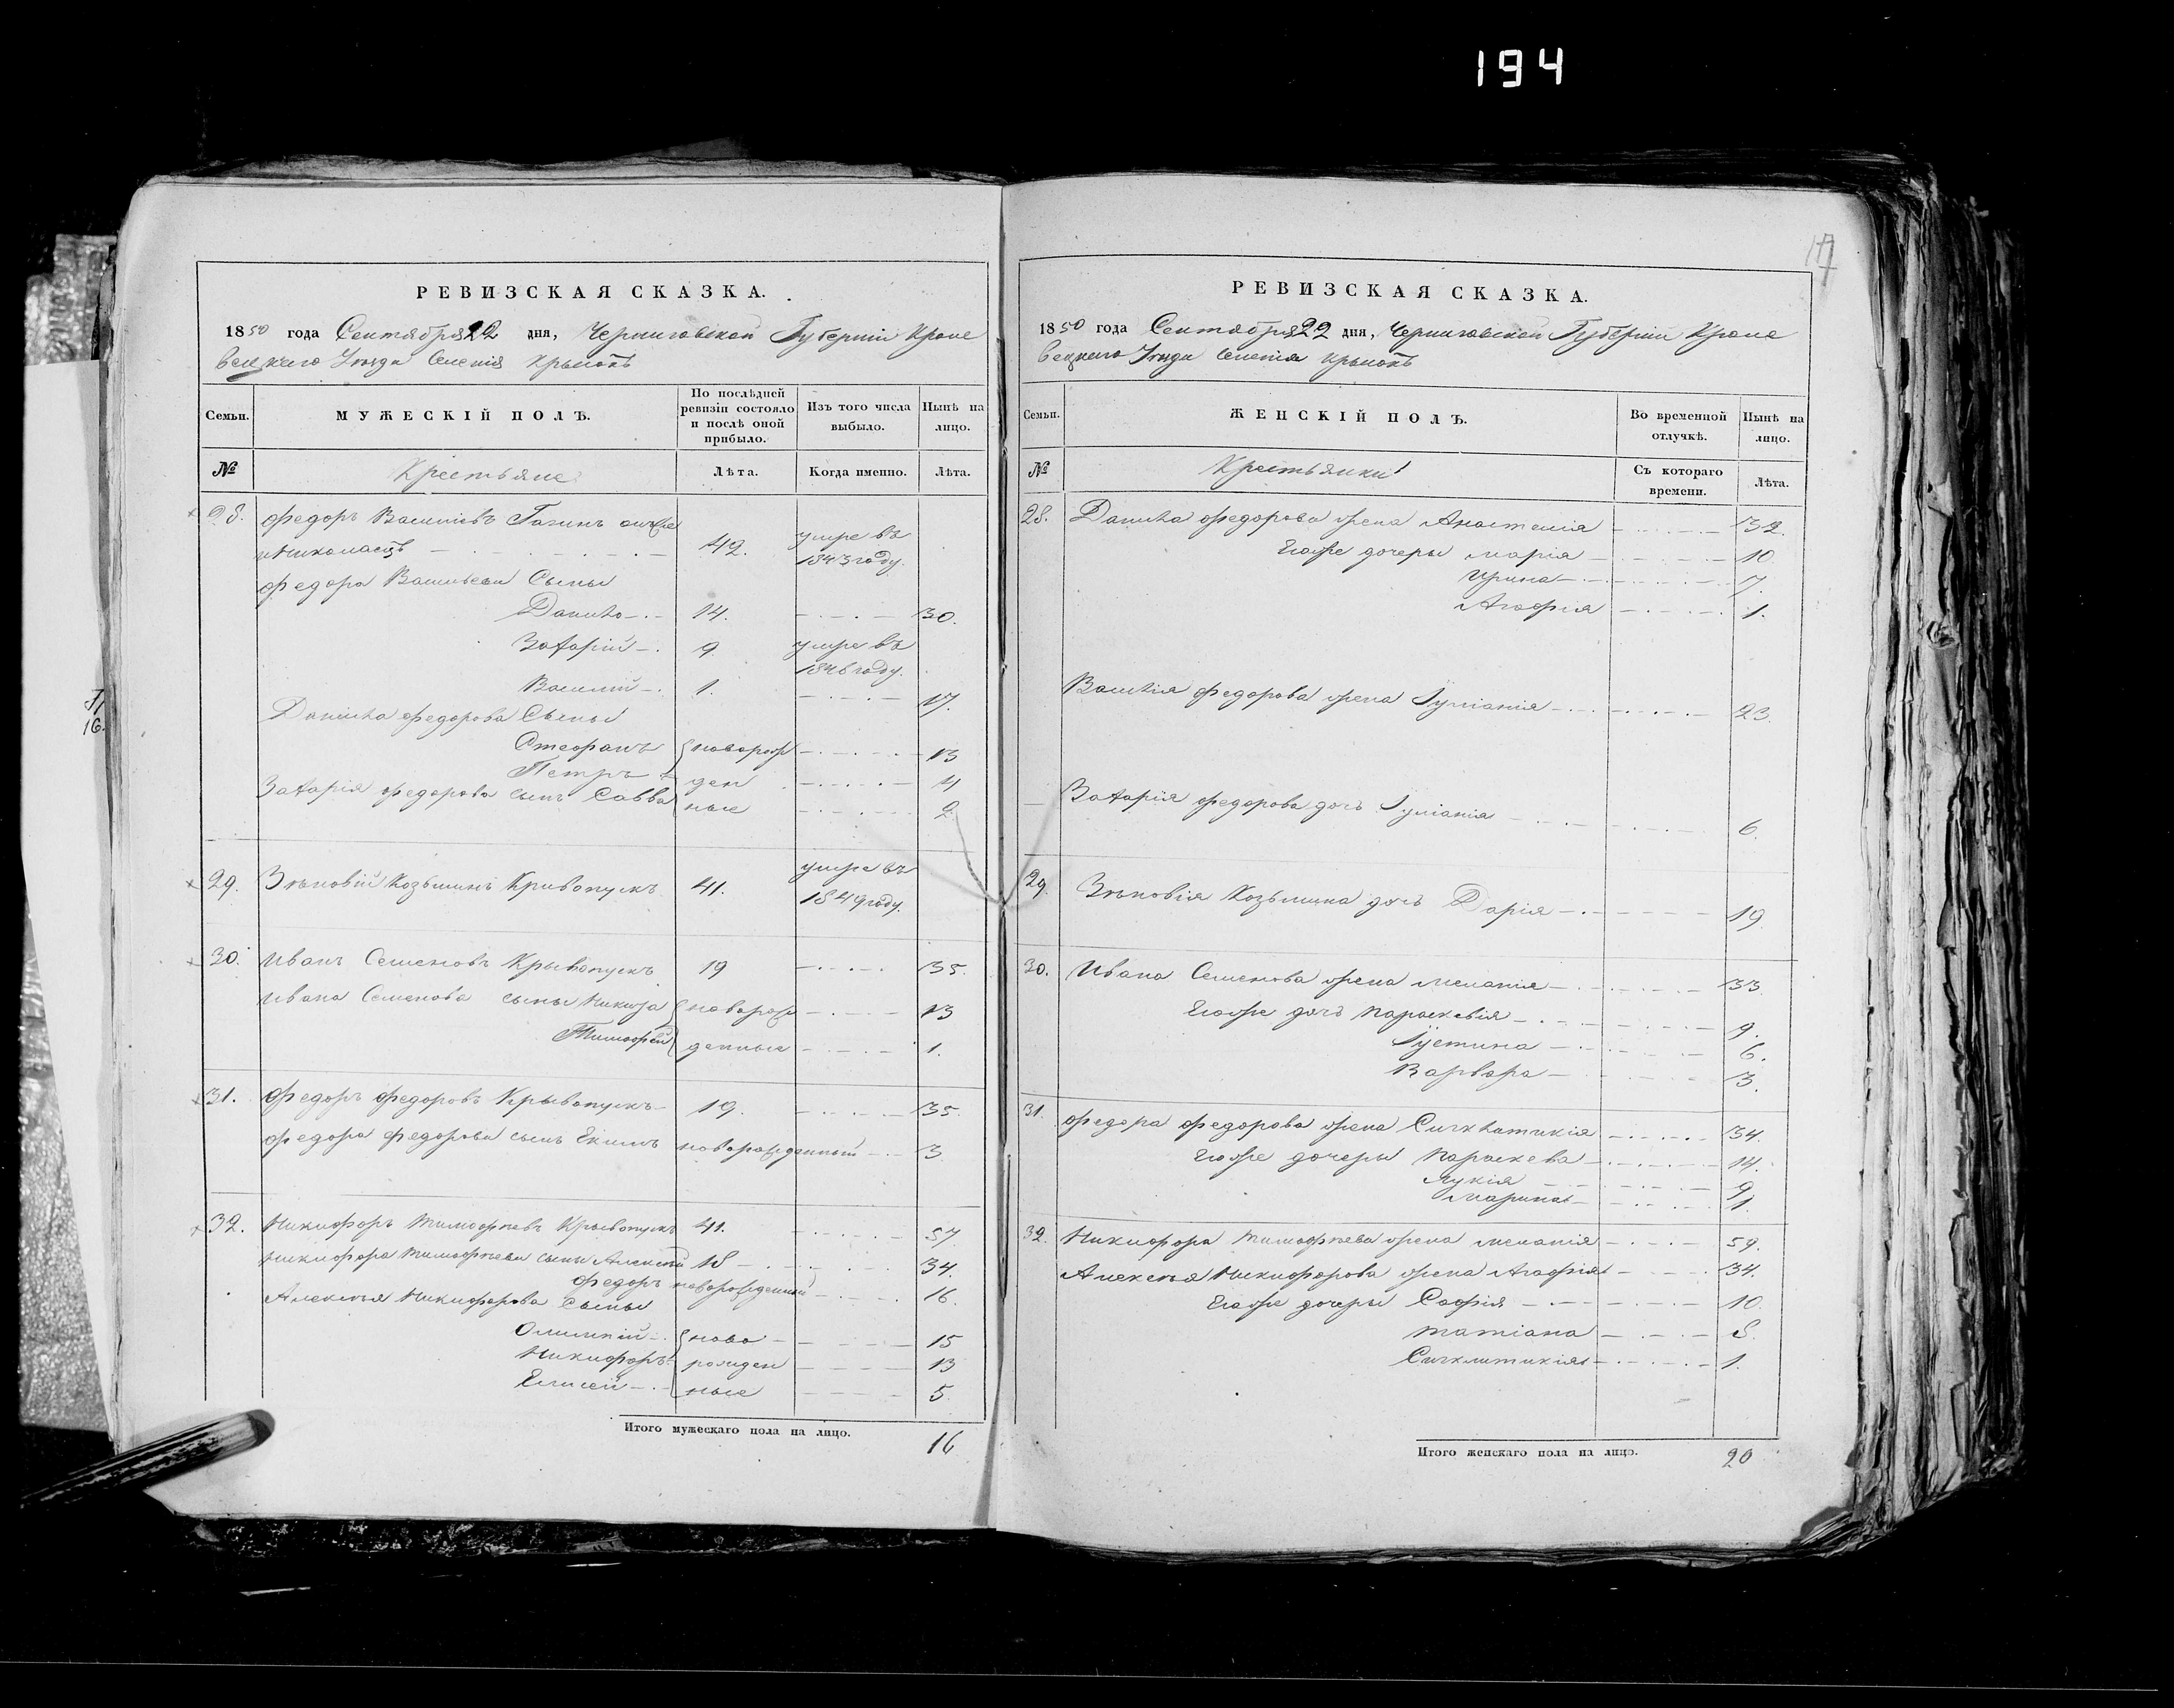 194
17
РЕВИЗСКАЯ СКАЗКА.
1850 года Сентября 22 дня, Черниговской Губерніи Кроле
вецкаго Уѣзда Селенія
Семьи. МУЖЕСКІЙ ПОЛЪ. По послѣдней ревизіи состояло и послѣ оной прибыло. Изъ того числа выбыло. Нынѣ на лицо.
№ Крестьяне Лѣта. Когда именно. Лѣта.
28. Федоръ Васильевъ онъ же умре въ
42. 1843 году.
Федора Васильева Сыны
Данило 14. 30.
Захарій 9 умре въ
1846 году.
Василій 1. 17.
Данила Федорова Сыны
Стефанъ новорож 13
Петръ ден 4
Захарія Федорова сынъ Савва ные 2.
29. Зѣновій Козьминъ Кривопускъ 41. умре въ
1849 году.
30. Иванъ Семеновъ Крывопускъ 19 35.
Ивана Семенова сыны Никита новорож 13
Тимофей денные 1.
31. Федоръ Федоровъ Крывопускъ 19. 35.
Федора Федорова сынъ Екимъ новорожденный 3
32. Никифоръ Тимофѣевъ Крывопускъ 41. 57.
Никифора Тимофѣева сыны Алексѣй 18 34.
Федоръ новорожденный 16.
Алексѣя Никифорова Сыны
Олимпій ново 15
Никифоръ рожден 13
Елисей ные 5.
Итого мужескаго пола на лицо. 16
РЕВИЗСКАЯ СКАЗКА.
1850 года Сентября 22 дня, Черниговской Губерніи Кроле
вецкаго Уѣзда Селенія
Семьи. ЖЕНСКІЙ ПОЛЪ. Во временной отлучкѣ. Нынѣ на лицо.
№ Крестьянки Съ котораго времени. Лѣта.
28. Данила Федорова жена Анастасія 32.
Егоже дочеры Марія 10
Ирина 7.
Агафія 1.
Василія Федорова жена Іуліанія 23.
Захарія Федорова дочь Іуліанія 6.
29. Зѣновія Козьмина дочь Дарія 19
30. Ивана Семенова жена Меланія 33
Егоже дочь Параскевія 9.
Іустина 6.
Варвара 3.
31. Федора Федорова жена Сигклитикія 34.
Егоже дочеры Параскева 14.
Лукія 9
Марина 1.
32. Никифора Тимофѣева жена Меланія 59.
Алексѣя Никифорова жена Агафія 34.
Егоже дочеры Софія 10.
Татіана 8.
Сигклитикія 1.
Итого женскаго пола на лицо. 20